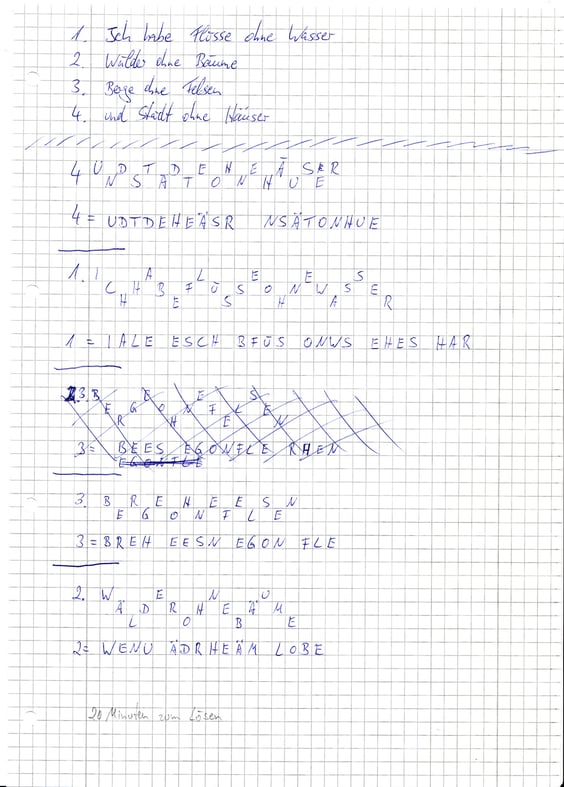 1. Ich habe Flüsse ohne Wasser
2. Wälder ohne Bäume
3. Berge ohne Felsen
4. und Städt ohne Häuser
4 U D T D E H E Ä S R
N S Ä T O N H U E
4 = UDTDEHEÄSR NSÄTONHUE
1. I A L E E S
C H B F Ü S O N W S E
H E S H A R
1 = IALE ESCH BFÜS ONWS EHES HAR
3. B E E S
E G O N F L E
R H E N
3 = BEES EGONFLE RHEN
EGONFLE
3. B R E H E E S N
E G O N F L E
3 = BREH EESN EGON FLE
2. W E N U
Ä D R H E Ä M
L O B E
2 = WENU ÄDRHEÄM LOBE
20 Minuten zum Lösen